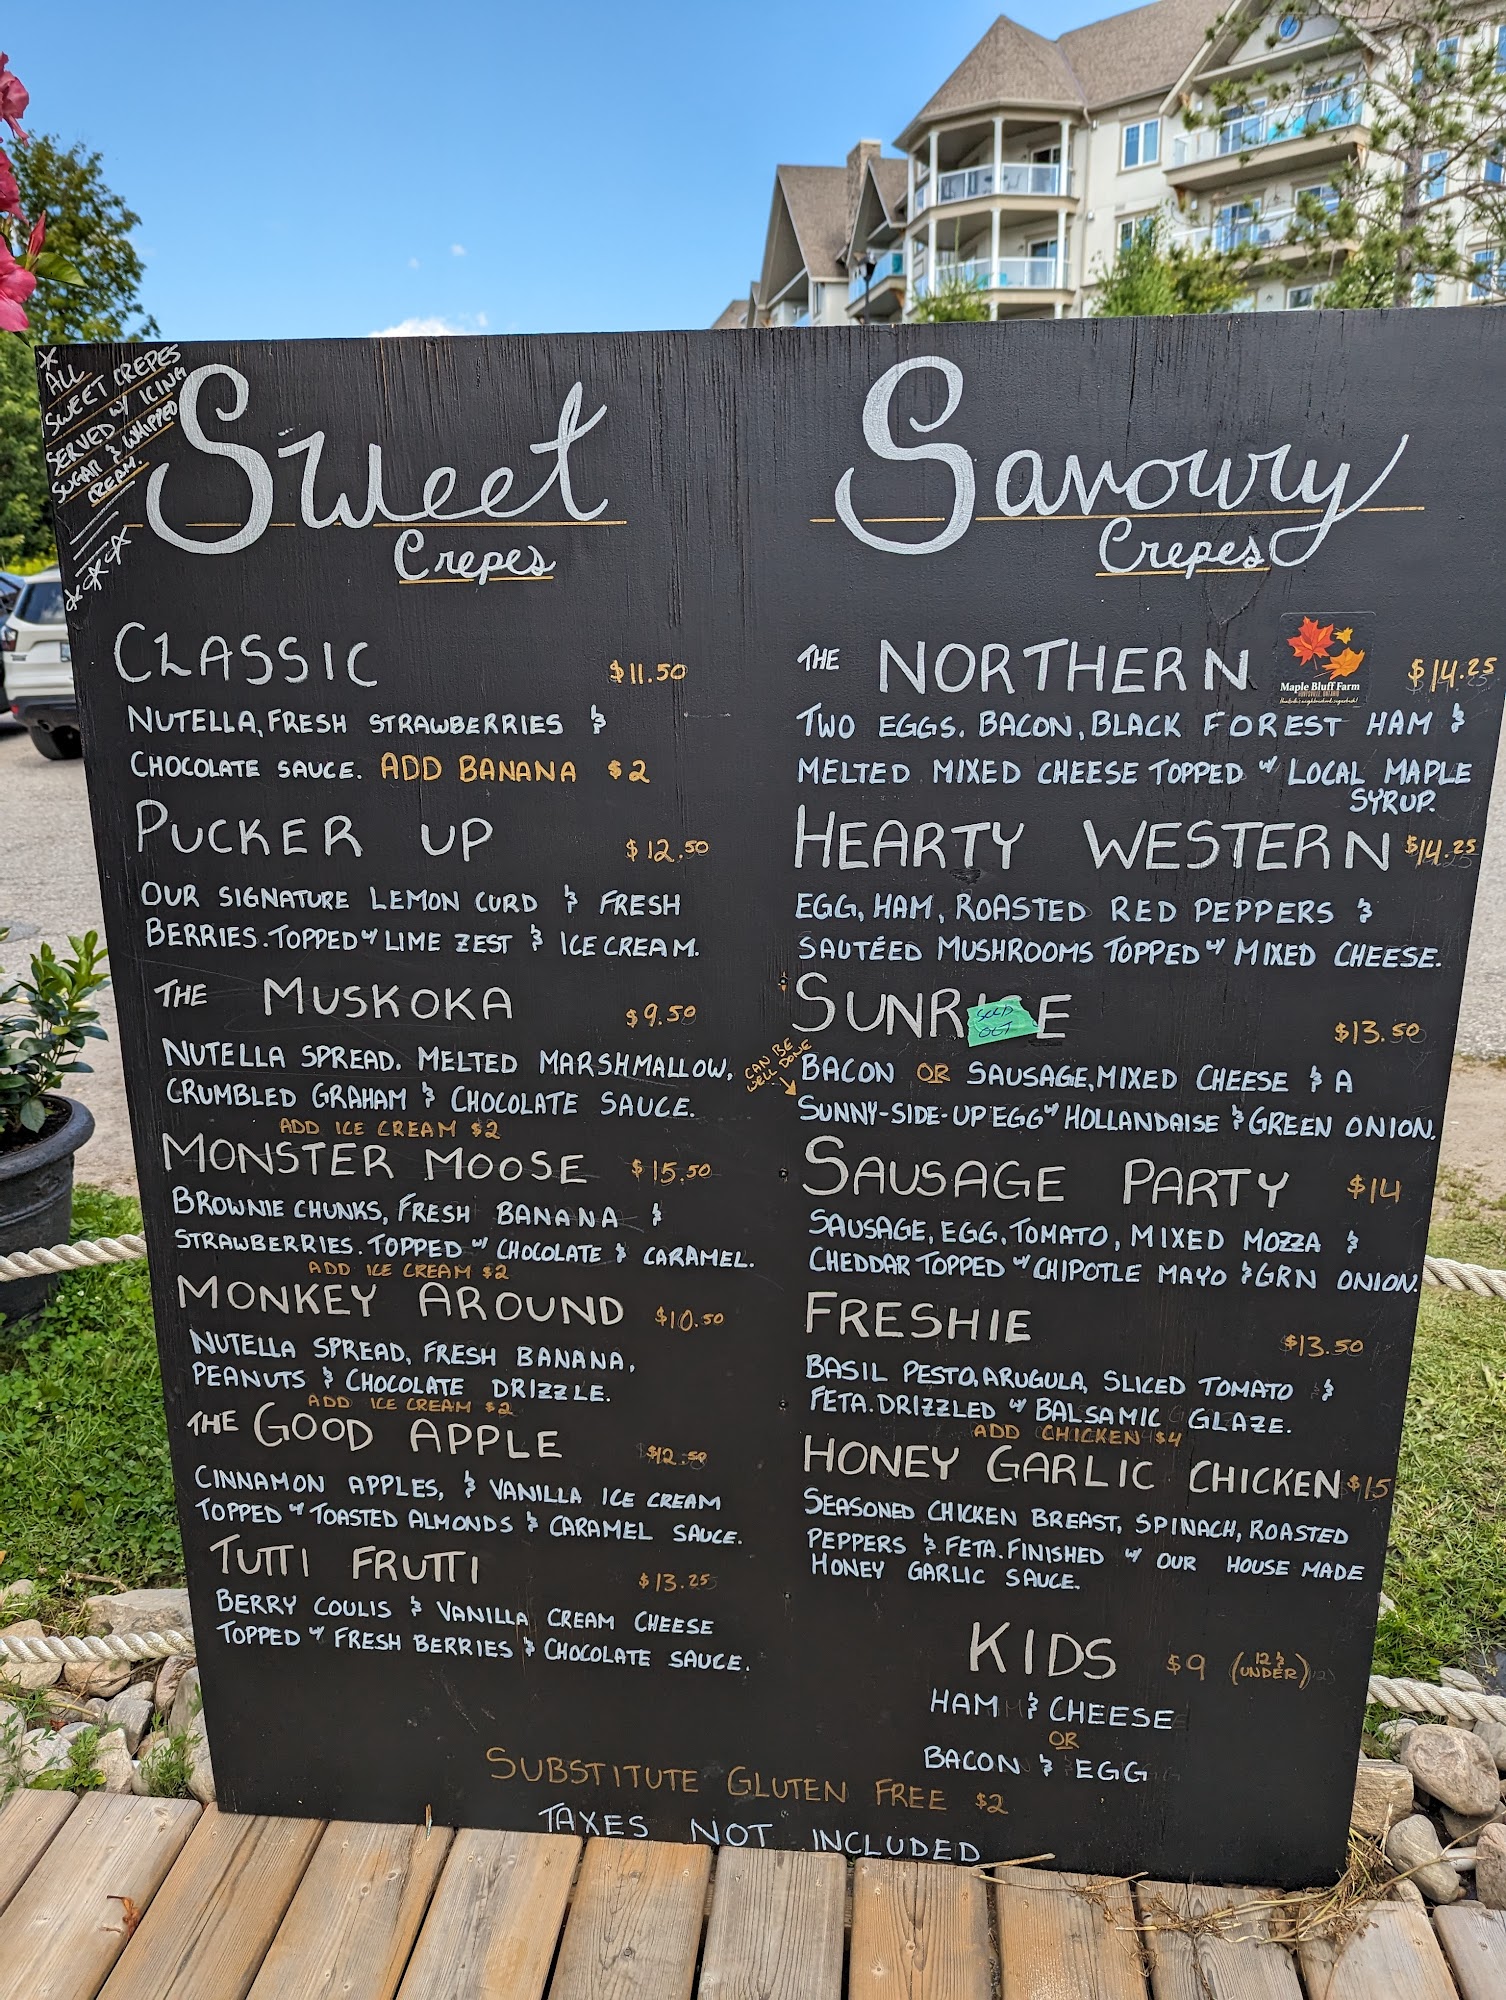 ALL
SWEET CREPES
SERVED W/ ICING
SUGAR & WHIPPED
CREAM.
Sweet
Crepes
CLASSIC $11.50
NUTELLA, FRESH STRAWBERRIES &
CHOCOLATE SAUCE. ADD BANANA $2
PUCKER UP $12.50
OUR SIGNATURE LEMON CURD & FRESH
BERRIES. TOPPED W/ LIME ZEST & ICE CREAM.
THE MUSKOKA $9.50
NUTELLA SPREAD. MELTED MARSHMALLOW,
CRUMBLED GRAHAM & CHOCOLATE SAUCE.
ADD ICE CREAM $2
MONSTER MOOSE $15.50
BROWNIE CHUNKS, FRESH BANANA &
STRAWBERRIES. TOPPED W/ CHOCOLATE & CARAMEL.
ADD ICE CREAM $2
MONKEY AROUND $10.50
NUTELLA SPREAD, FRESH BANANA,
PEANUTS & CHOCOLATE DRIZZLE.
ADD ICE CREAM $2
THE GOOD APPLE $12.50
CINNAMON APPLES, & VANILLA ICE CREAM
TOPPED W/ TOASTED ALMONDS & CARAMEL SAUCE.
TUTTI FRUTTI $13.25
BERRY COULIS & VANILLA CREAM CHEESE
TOPPED W/ FRESH BERRIES & CHOCOLATE SAUCE.
Savoury
Crepes
THE NORTHERN $14.25
Maple Bluff Farm
TWO EGGS. BACON, BLACK FOREST HAM &
MELTED MIXED CHEESE TOPPED W/ LOCAL MAPLE
SYRUP.
HEARTY WESTERN $14.25
EGG, HAM, ROASTED RED PEPPERS &
SAUTÉED MUSHROOMS TOPPED W/ MIXED CHEESE.
SUNRISE $13.50
SOLD
OUT
CAN BE
WELL DONE
BACON OR SAUSAGE, MIXED CHEESE & A
SUNNY-SIDE-UP EGG W/ HOLLANDAISE & GREEN ONION.
SAUSAGE PARTY $14
SAUSAGE, EGG, TOMATO, MIXED MOZZA &
CHEDDAR TOPPED W/ CHIPOTLE MAYO & GRN ONION.
FRESHIE $13.50
BASIL PESTO, ARUGULA, SLICED TOMATO &
FETA. DRIZZLED W/ BALSAMIC GLAZE.
ADD CHICKEN $4
HONEY GARLIC CHICKEN $15
SEASONED CHICKEN BREAST, SPINACH, ROASTED
PEPPERS & FETA. FINISHED W/ OUR HOUSE MADE
HONEY GARLIC SAUCE.
KIDS $9 (12 & UNDER)
HAM & CHEESE
OR
BACON & EGG
SUBSTITUTE GLUTEN FREE $2
TAXES NOT INCLUDED